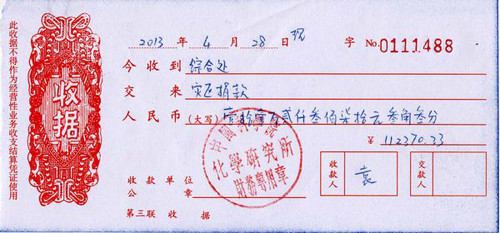 此收据不得作为经营性业务收支结算凭证使用
收据
2013 年 4 月 28 日 现 字 No. 0111488
今收到 综合处
交来 灾区捐款
人民币 (大写) 壹拾壹万贰仟叁佰柒拾元 叁角叁分
¥ 112370.33
中国科学院
化学研究所
财务专用章
收款单位
公章
收款人 袁
交款人
第三联 收据